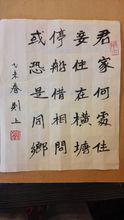 君家何處住
妾住在橫塘
停船借相問
或恐是同鄉
乙未春